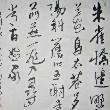 朱雀橋邊野
草花烏衣巷口夕
陽斜舊時王謝堂
前燕飛入尋
常百姓家